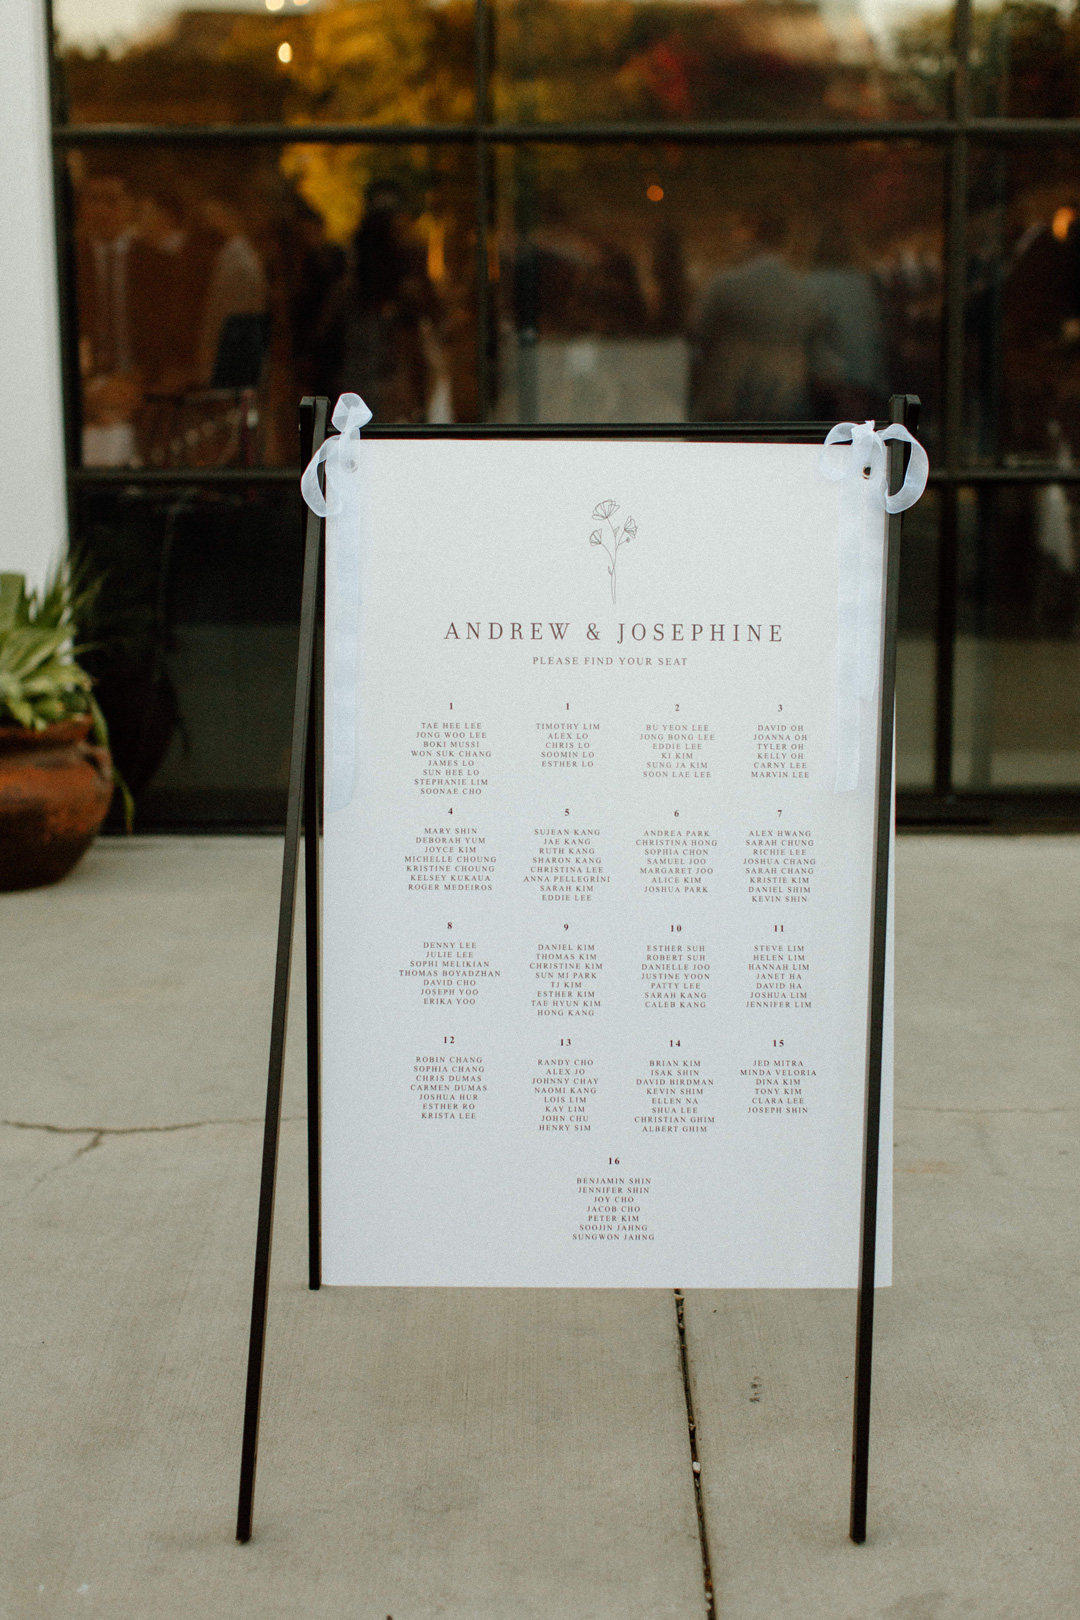 ANDREW & JOSEPHINE
PLEASE FIND YOUR SEAT
1
TAE HEE LEE
JONG WOO LEE
BOKI MUSSI
WON SUK CHANG
JAMES LO
SUN HEE LO
STEPHANIE LIM
SOONAE CHO
1
TIMOTHY LIM
ALEX LO
CHRIS LO
SOOMIN LO
ESTHER LO
2
BU YEON LEE
JONG BONG LEE
EDDIE LEE
KI KIM
SUNG JA KIM
SOON LAE LEE
3
DAVID OH
JOANNA OH
TYLER OH
KELLY OH
CARNY LEE
MARVIN LEE
4
MARY SHIN
DEBORAH YUM
JOYCE KIM
MICHELLE CHOUNG
KRISTINE CHOUNG
KELSEY KUKAUA
ROGER MEDEIROS
5
SUJEAN KANG
JAE KANG
RUTH KANG
SHARON KANG
CHRISTINA LEE
ANNA PELLEGRINI
SARAH KIM
EDDIE LEE
6
ANDREA PARK
CHRISTINA HONG
SOPHIA CHON
SAMUEL JOO
MARGARET JOO
ALICE KIM
JOSHUA PARK
7
ALEX HWANG
SARAH CHUNG
RICHIE LEE
JOSHUA CHANG
SARAH CHANG
KRISTIE KIM
DANIEL SHIM
KEVIN SHIN
8
DENNY LEE
JULIE LEE
SOPHI MELIKIAN
THOMAS BOYADZHAN
DAVID CHO
JOSEPH YOO
ERIKA YOO
9
DANIEL KIM
THOMAS KIM
CHRISTINE KIM
SUN MI PARK
TJ KIM
ESTHER KIM
TAE HYUN KIM
HONG KANG
10
ESTHER SUH
ROBERT SUH
DANIELLE JOO
JUSTINE YOON
PATTY LEE
SARAH KANG
CALEB KANG
11
STEVE LIM
HELEN LIM
HANNAH LIM
JANET HA
DAVID HA
JOSHUA LIM
JENNIFER LIM
12
ROBIN CHANG
SOPHIA CHANG
CHRIS DUMAS
CARMEN DUMAS
JOSHUA HUR
ESTHER RO
KRISTA LEE
13
RANDY CHO
ALEX JO
JOHNNY CHAY
NAOMI KANG
LOIS LIM
KAY LIM
JOHN CHU
HENRY SIM
14
BRIAN KIM
ISAK SHIN
DAVID BIRDMAN
KEVIN SHIM
ELLEN NA
SHUA LEE
CHRISTIAN GHIM
ALBERT GHIM
15
JED MITRA
MINDA VELORIA
DINA KIM
TONY KIM
CLARA LEE
JOSEPH SHIN
16
BENJAMIN SHIN
JENNIFER SHIN
JOY CHO
JACOB CHO
PETER KIM
SOOJIN JAHNG
SUNGWON JAHNG